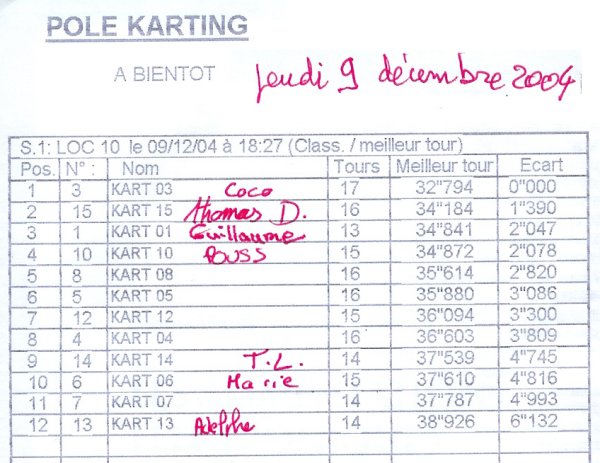 POLE KARTING
A BIENTOT Jeudi 9 décembre 2004
S.1: LOC 10 le 09/12/04 à 18:27 (Class. / meilleur tour)
Pos. N° : Nom Tours Meilleur tour Ecart
1 3 KART 03 Coco 17 32"794 0"000
2 15 KART 15 Thomas D. 16 34"184 1"390
3 1 KART 01 Guillaume 13 34"841 2"047
4 10 KART 10 POUSS 15 34"872 2"078
5 8 KART 08 16 35"614 2"820
6 5 KART 05 16 35"880 3"086
7 12 KART 12 15 36"094 3"300
8 4 KART 04 16 36"603 3"809
9 14 KART 14 T.L. 14 37"539 4"745
10 6 KART 06 Marie 15 37"610 4"816
11 7 KART 07 14 37"787 4"993
12 13 KART 13 Adelphe 14 38"926 6"132